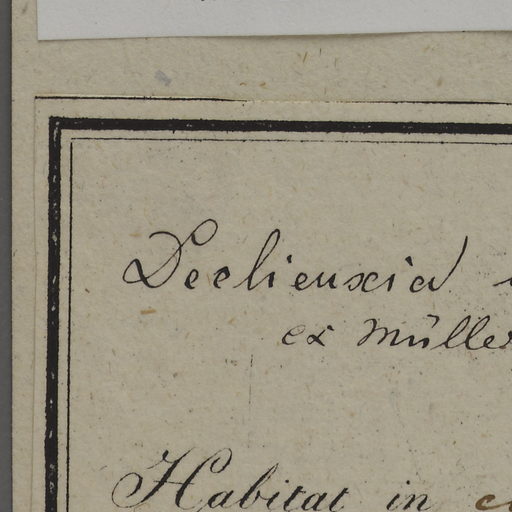 Declieuxia
ex Müller
Habitat in